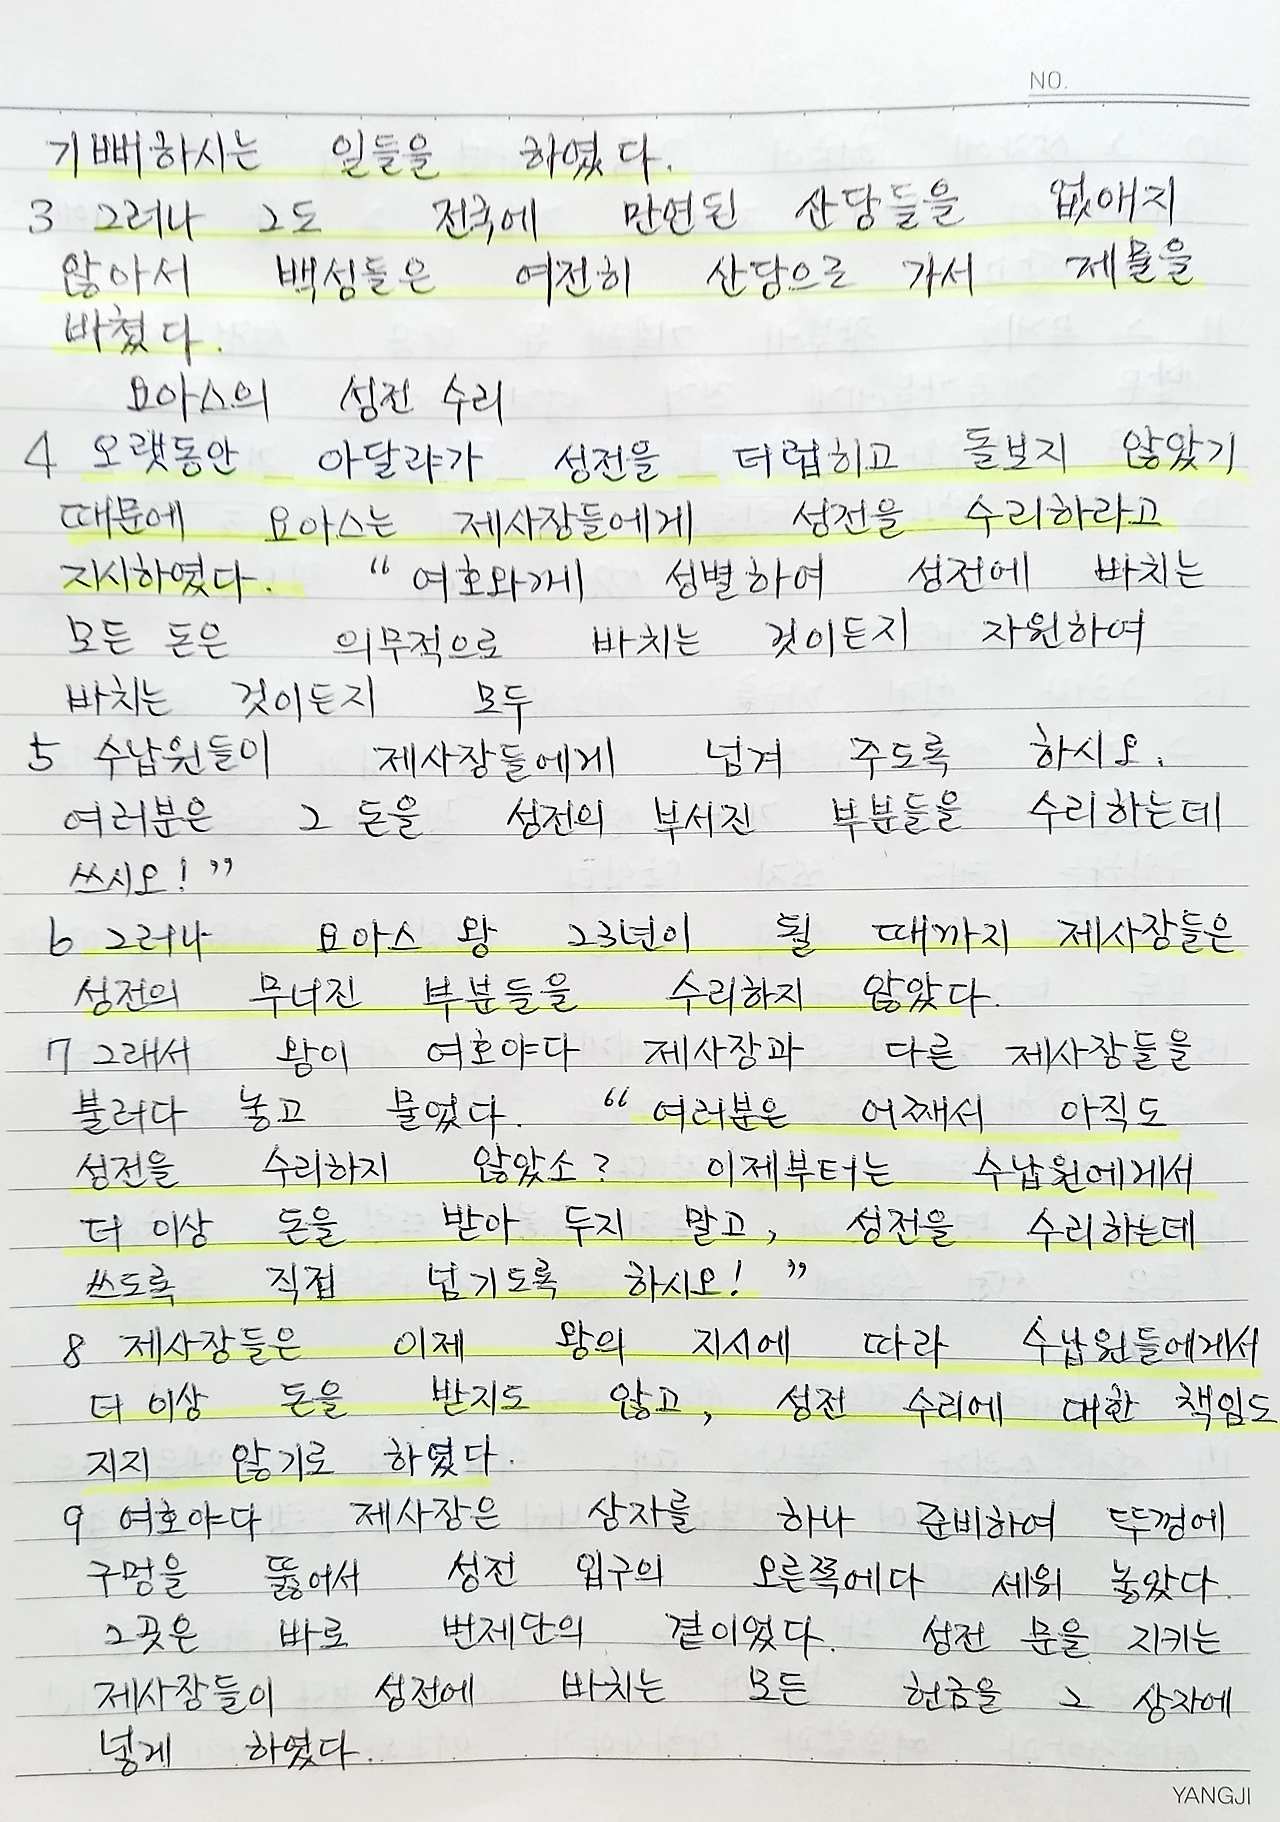 NO.
기뻐하시는 일들을 하였다.
3 그러나 그도 전국에 만연된 산당들을 없애지
않아서 백성들은 여전히 산당으로 가서 제물을
바쳤다.
요아스의 성전 수리
4 오랫동안 아달랴가 성전을 더럽히고 돌보지 않았기
때문에 요아스는 제사장들에게 성전을 수리하라고
지시하였다. “여호와께 성별하여 성전에 바치는
모든 돈은 의무적으로 바치는 것이든지 자원하여
바치는 것이든지 모두
5 수납원들이 제사장들에게 넘겨 주도록 하시오.
여러분은 그 돈을 성전의 부서진 부분들을 수리하는데
쓰시오!”
6 그러나 요아스 왕 23년이 될 때까지 제사장들은
성전의 무너진 부분들을 수리하지 않았다.
7 그래서 왕이 여호야다 제사장과 다른 제사장들을
불러다 놓고 물었다. “여러분은 어째서 아직도
성전을 수리하지 않았소? 이제부터는 수납원에게서
더 이상 돈을 받아 두지 말고, 성전을 수리하는데
쓰도록 직접 넘기도록 하시오!”
8 제사장들은 이제 왕의 지시에 따라 수납원들에게서
더 이상 돈을 받지도 않고, 성전 수리에 대한 책임도
지지 않기로 하였다.
9 여호야다 제사장은 상자를 하나 준비하여 뚜껑에
구멍을 뚫어서 성전 입구의 오른쪽에다 세워 놓았다.
그곳은 바로 번제단의 곁이었다. 성전 문을 지키는
제사장들이 성전에 바치는 모든 헌금을 그 상자에
넣게 하였다.
YANGJI